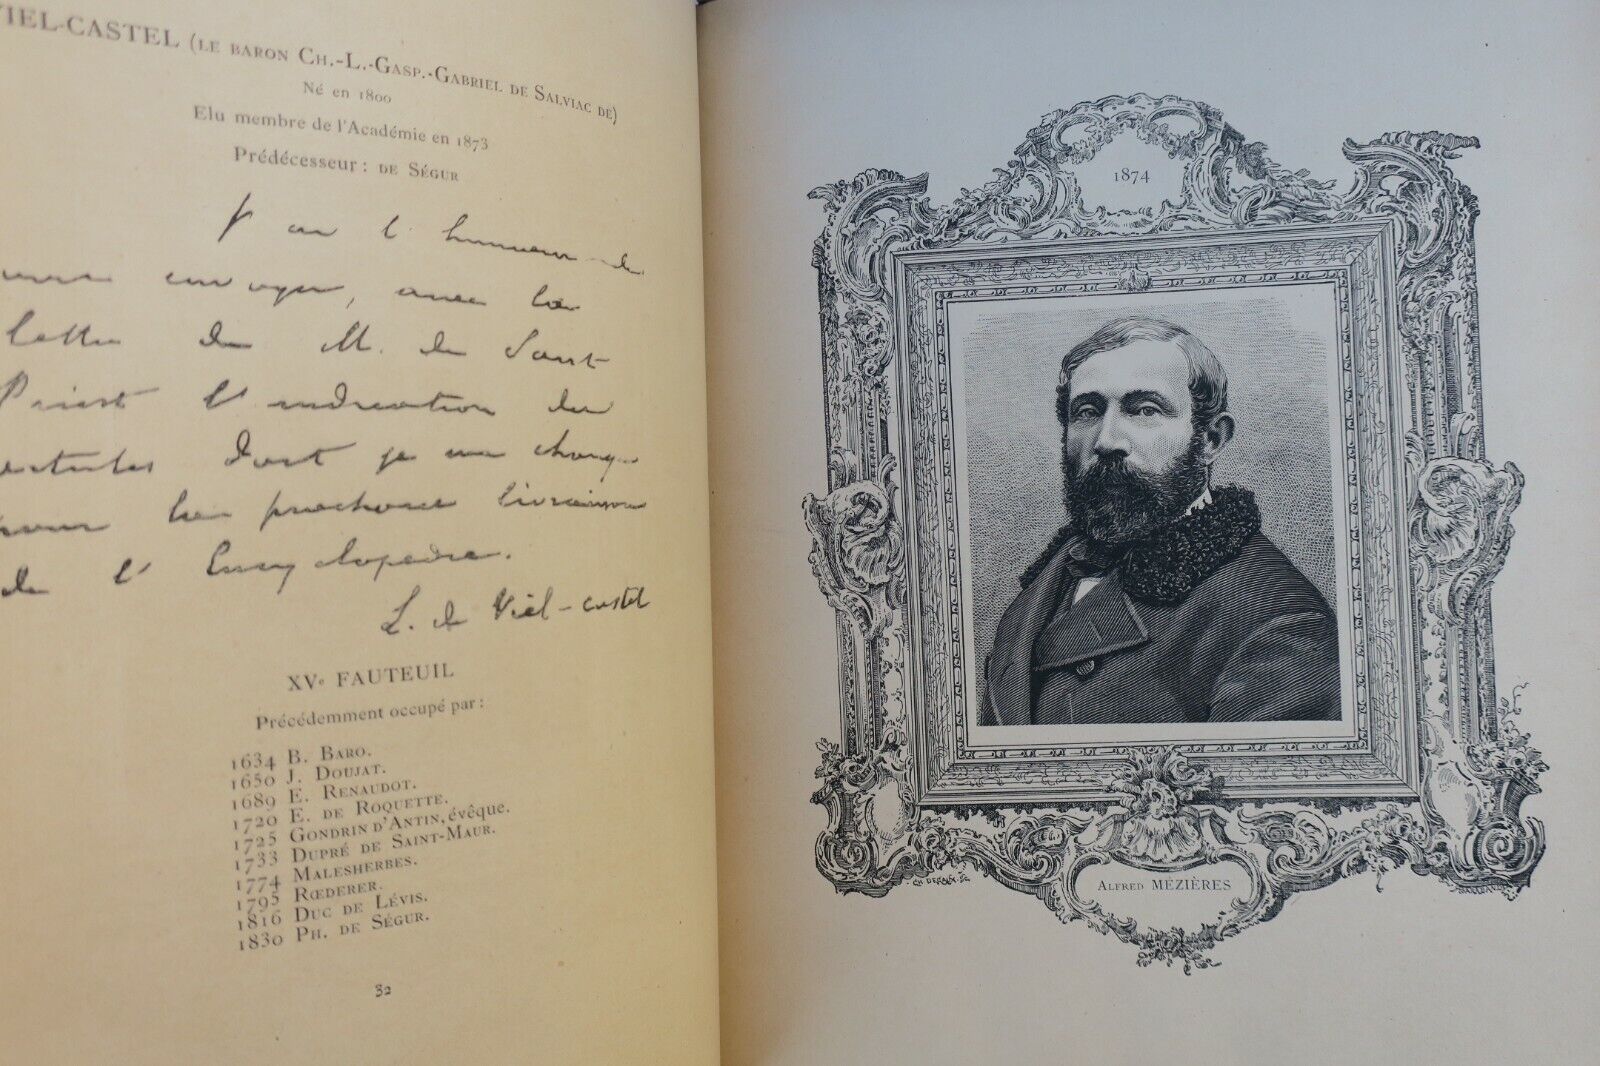 VIEL-CASTEL (LE BARON CH.-L.-GASP.-GABRIEL DE SALVIAC DE)
Né en 1800
Elu membre de l'Académie en 1873
Prédécesseur : DE SÉGUR
J'ai l'honneur de
vous envoyer, avec la
lettre de M. de Saint
Priest l'indication des
articles dont je me charge
pour la prochaine livraison
de l'Encyclopédie.
L. de Viel-castel
XVe FAUTEUIL
Précédemment occupé par :
1634 B. BARO.
1650 J. DOUJAT.
1689 E. RENAUDOT.
1720 E. DE ROQUETTE.
1725 GONDRIN D'ANTIN, évêque.
1733 DUPRÉ DE SAINT-MAUR.
1774 MALESHERBES.
1795 RŒDERER.
1816 DUC DE LÉVIS.
1830 PH. DE SÉGUR.
32
1874
ALFRED MÉZIÈRES